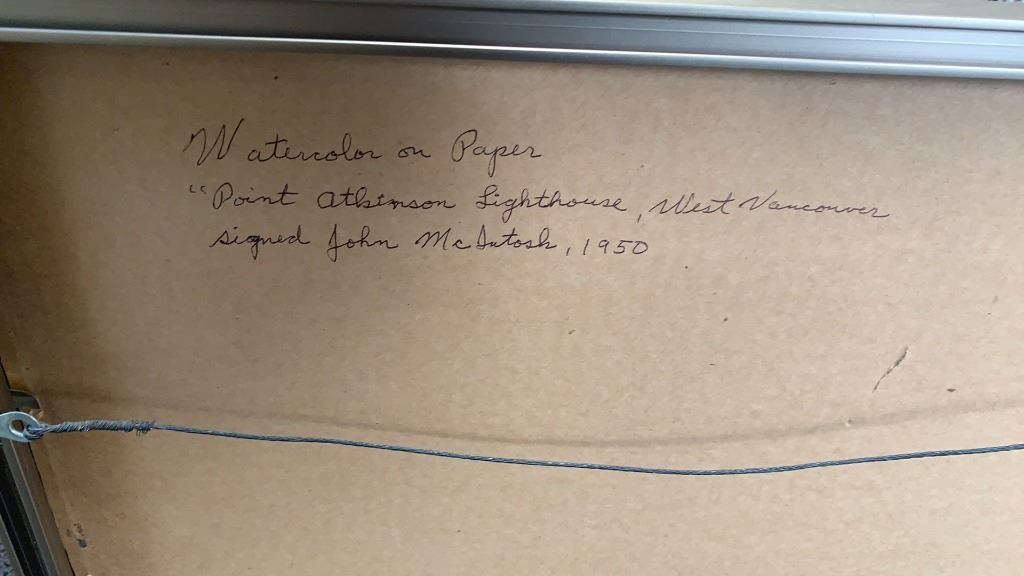 Watercolor on Paper
"Point Atkinson Lighthouse, West Vancouver
signed John McIntosh, 1950